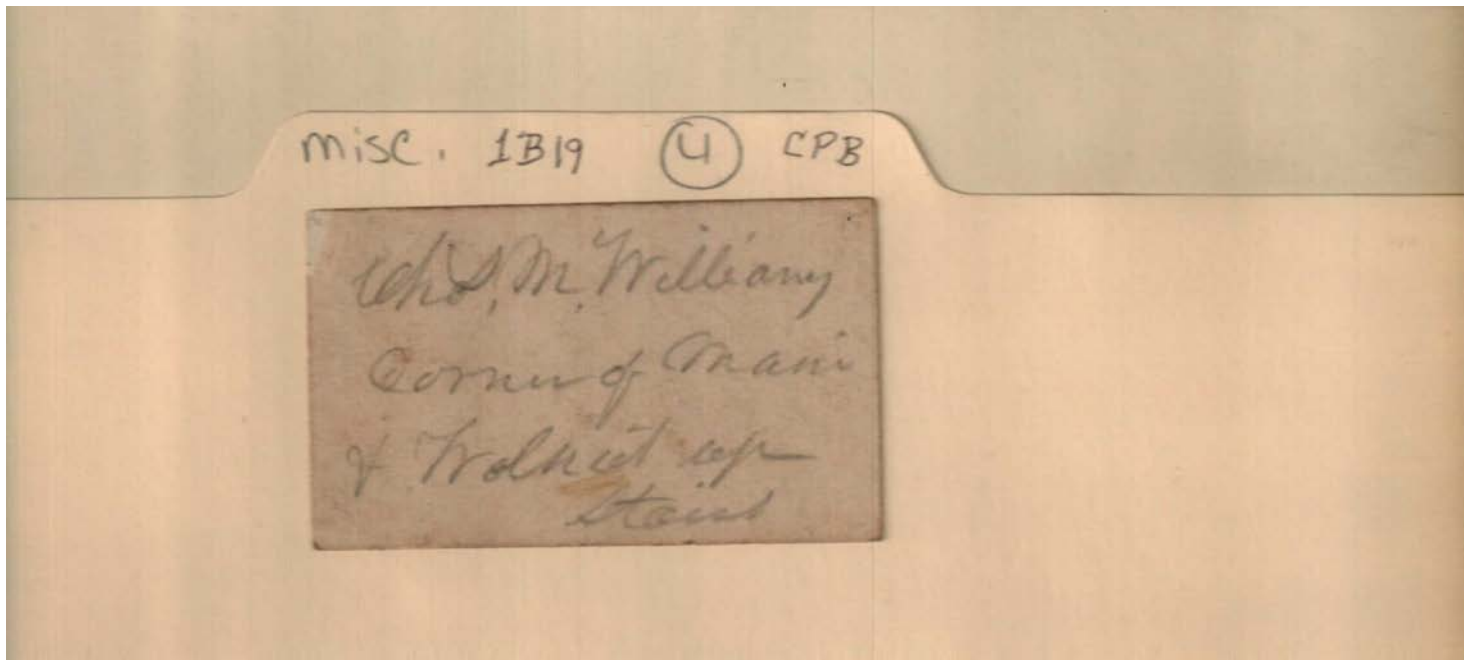 misc. 1B19 4 CPB
Chs. M. Williams
Corner of Main
& Wolnut up
stairs